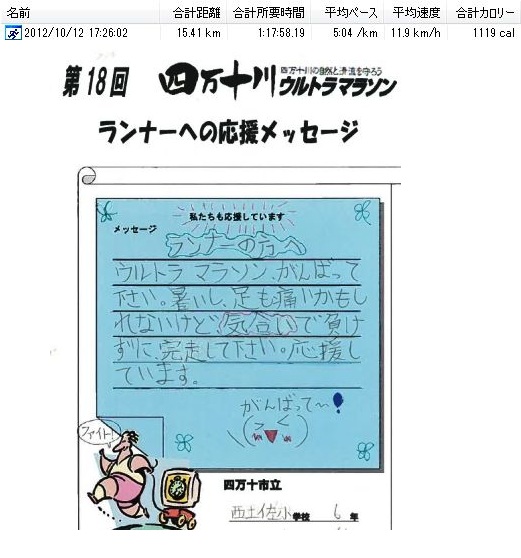 名前 合計距離 合計所要時間 平均ペース 平均速度 合計カロリー
2012/10/12 17:26:02 15.41 km 1:17:58.19 5:04 /km 11.9 km/h 1119 cal
第18回 四万十川 四万十川の自然と清流を守ろう ウルトラマラソン
ランナーへの応援メッセージ
私たちも応援しています
メッセージ
ランナーの方へ
ウルトラ マラソン、がんばって
下さい。暑いし、足も痛いかもし
れないけど、気合いで負け
ずに、完走して下さい。応援し
ています。
がんばって〜!
ファイト!
四万十市立
西土佐小学校 6年